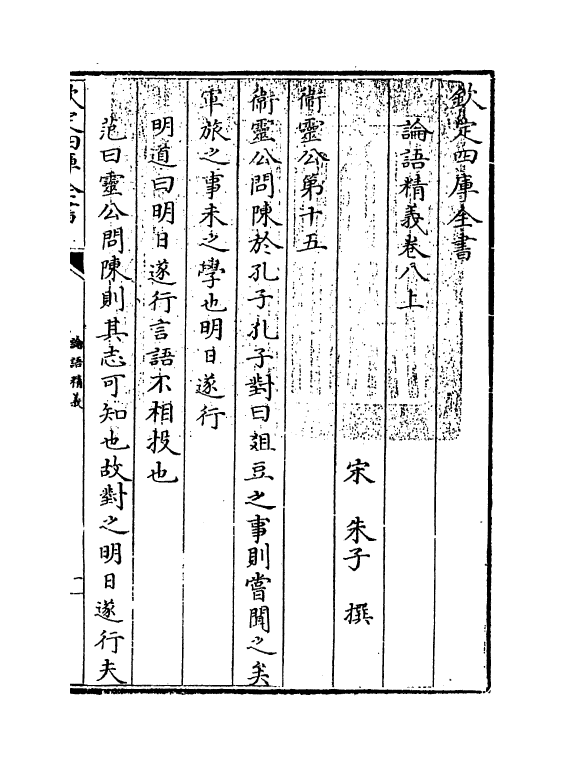 欽定四庫全書
論語精義卷八上
宋 朱子 撰
衛靈公第十五
衛靈公問陳於孔子孔子對曰俎豆之事則嘗聞之矣
軍旅之事未之學也明日遂行
明道曰明日遂行言語不相投也
范曰靈公問陳則其志可知也故對之明日遂行夫
欽定四庫全書
論語精義